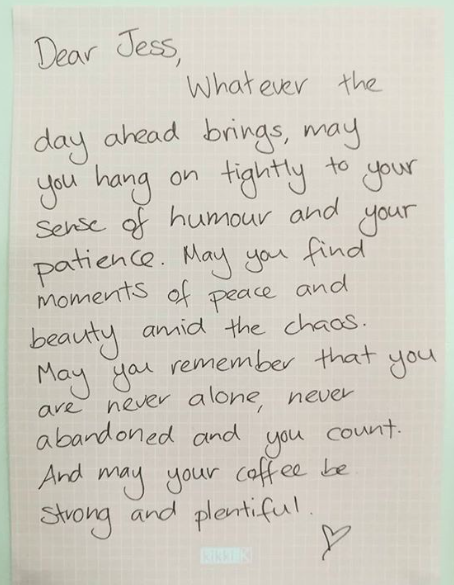 Dear Jess,
Whatever the
day ahead brings, may
you hang on tightly to your
sense of humour and your
patience. May you find
moments of peace and
beauty amid the chaos.
May you remember that you
are never alone, never
abandoned and you count.
And may your coffee be
strong and plentiful.
kikki.K